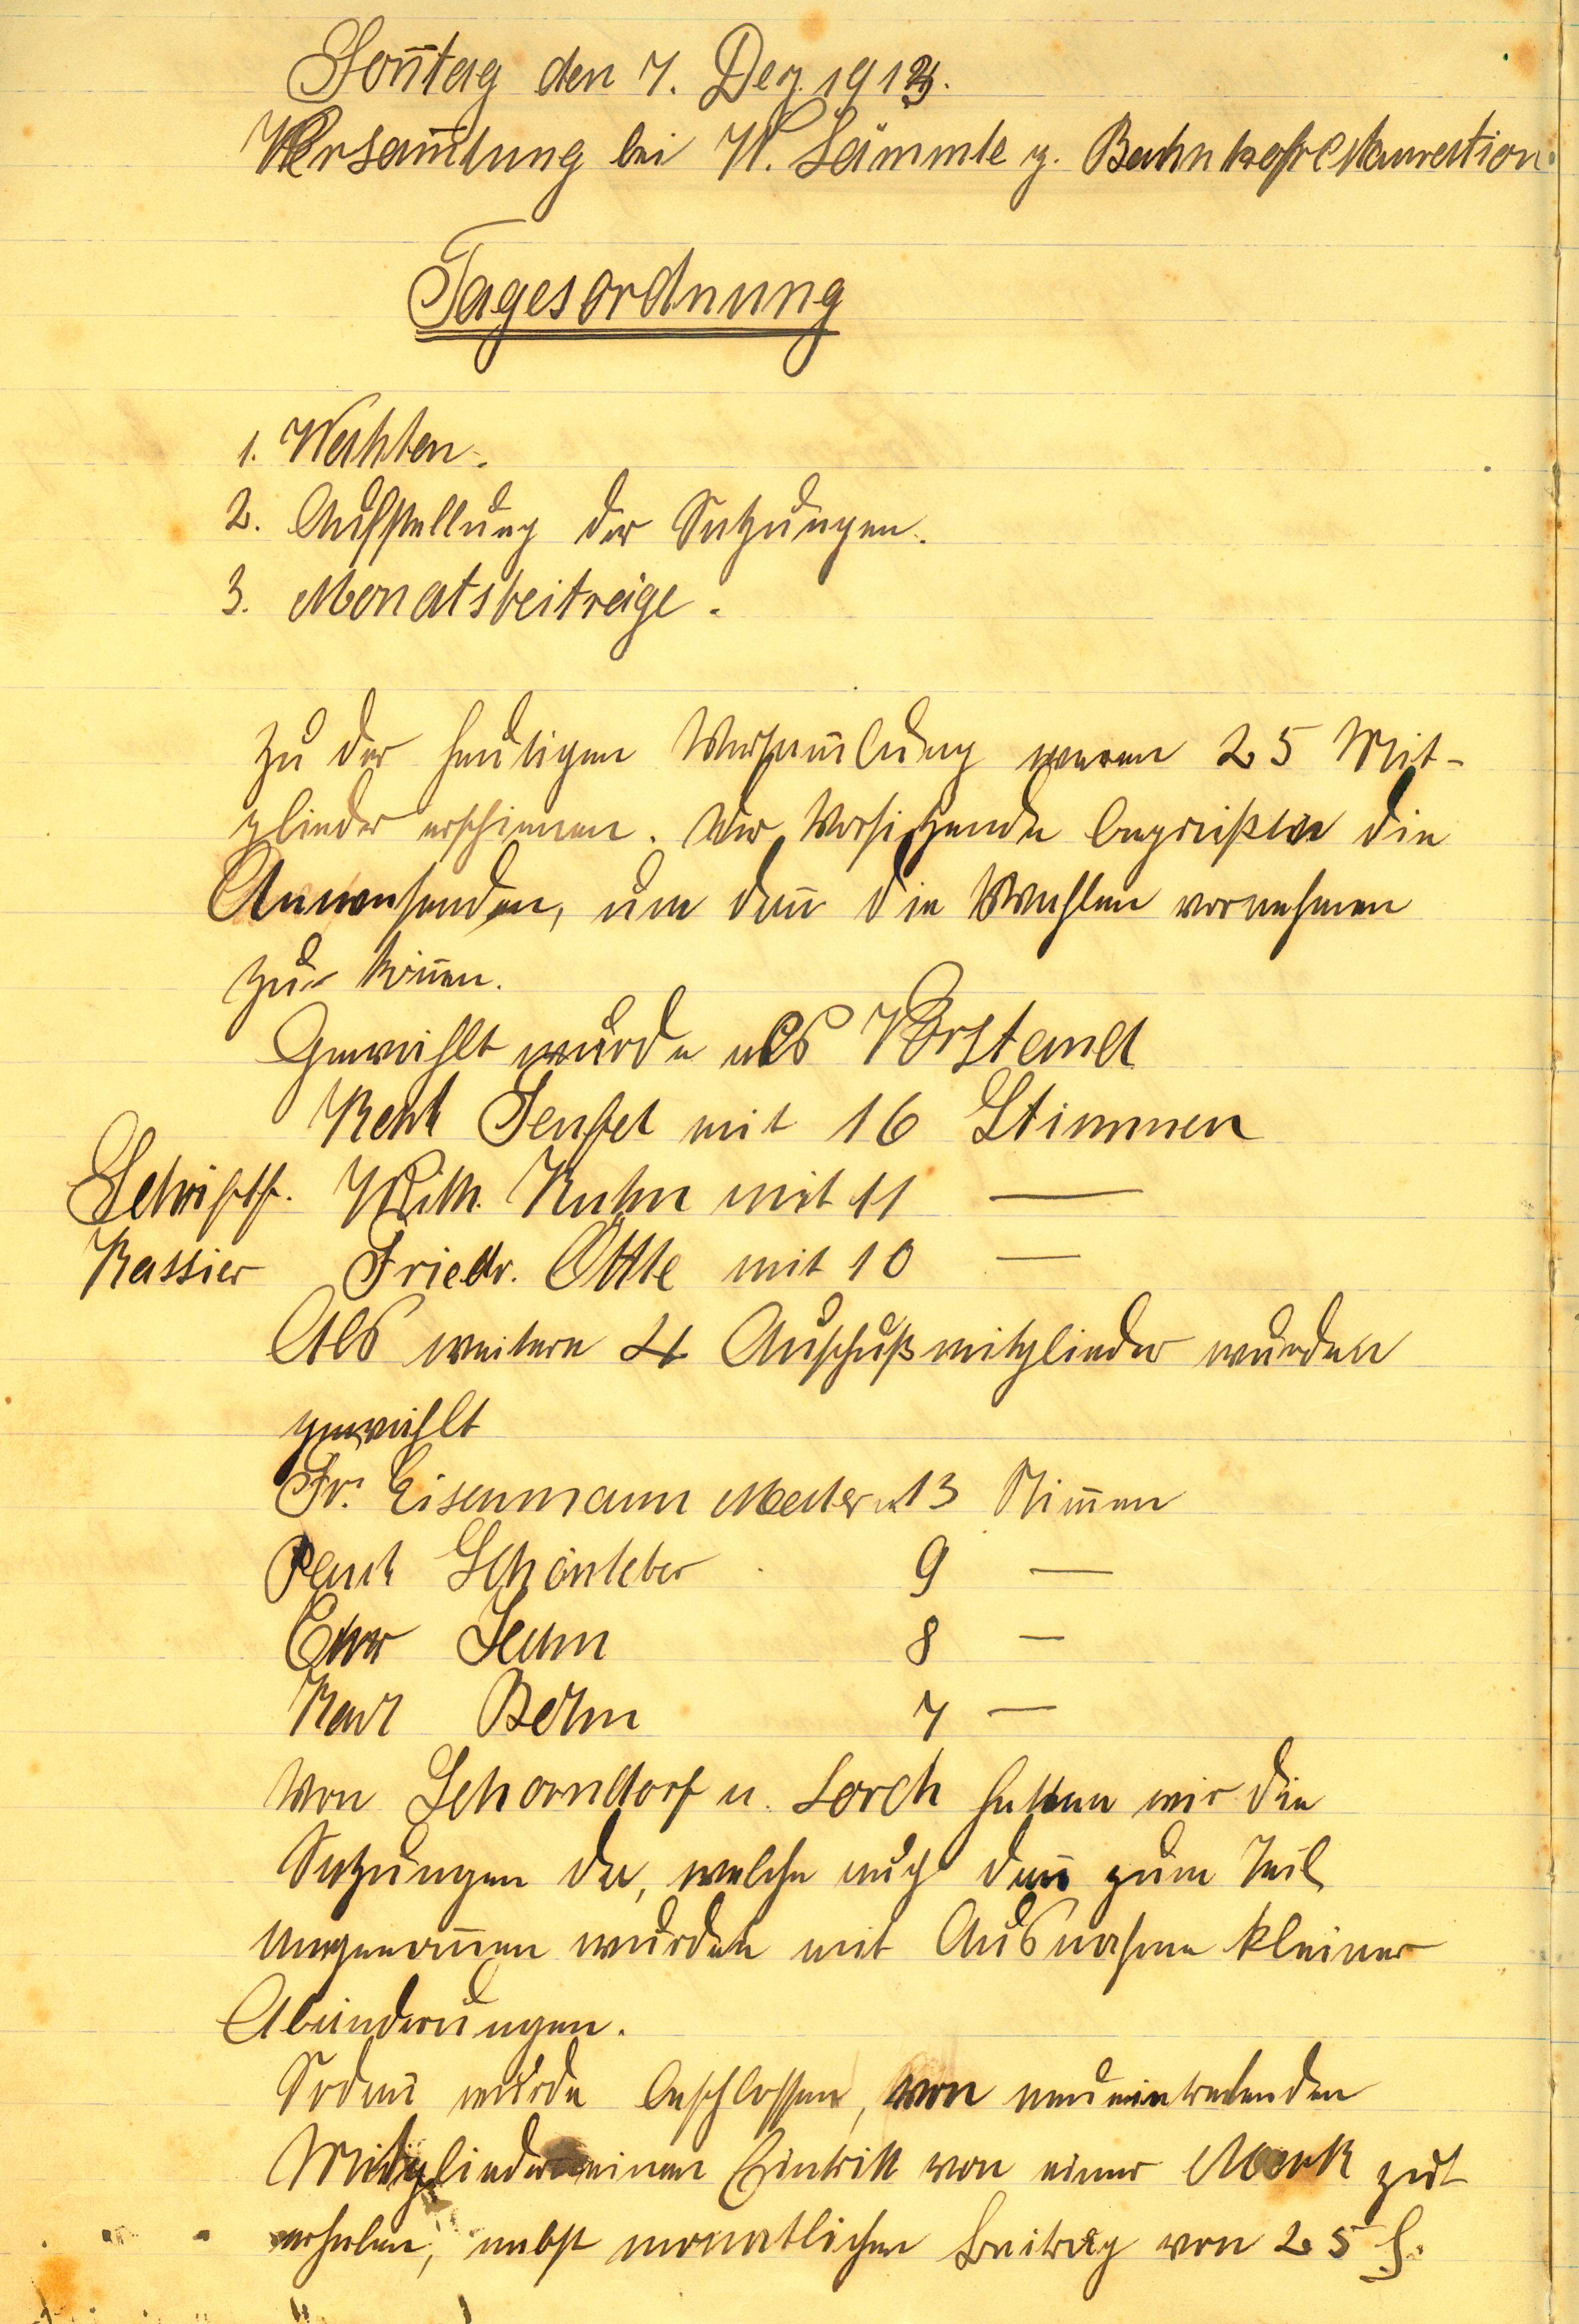 Son̄tag den 7. Dez. 1913.
Versam̄lung bei W. Lämmle z. Bahnhofrestauration.
Tagesordnung
1. Wahlen.
2. Aufstellung der Satzungen.
3. Monatsbeiträge.
Zu der heutigen Versam̄lung waren 25 Mit-
glieder erschienen. Der Vorsitzende begrüßte die
Anwesenden, um dan̄ die Wahlen vornehmen
zu kön̄en.
Gewählt wurde als Vorstand
Karl mit 16 Stimmen
Schriftf. Wilh. Kuhn mit 11 —
Kassier Friedr. Öttle mit 10 —
Als weitere 4 Auschußmitglieder wurden
gewählt
Fr. Eisenmann Maler 13 Stim̄en
Paul Schönleber 9 —
8 —
Karl 7 —
Von Schorndorf u. Lorch hatten wir die
Satzungen da, welche auch dan̄ zum Teil
angenom̄en wurden mit Ausnahme kleiner
Abänderungen.
Sodan̄ wurde beschlossen, von neueintretenden
Mitglieder einen Eintritt von einer Mark zu
erheben, nebst monatlichen Beitrag von 25 ₰.